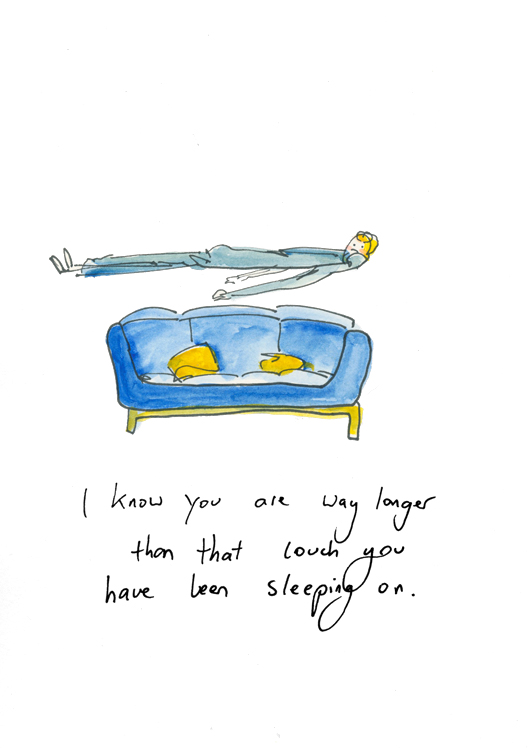 I know you are way longer
than that couch you
have been sleeping on.